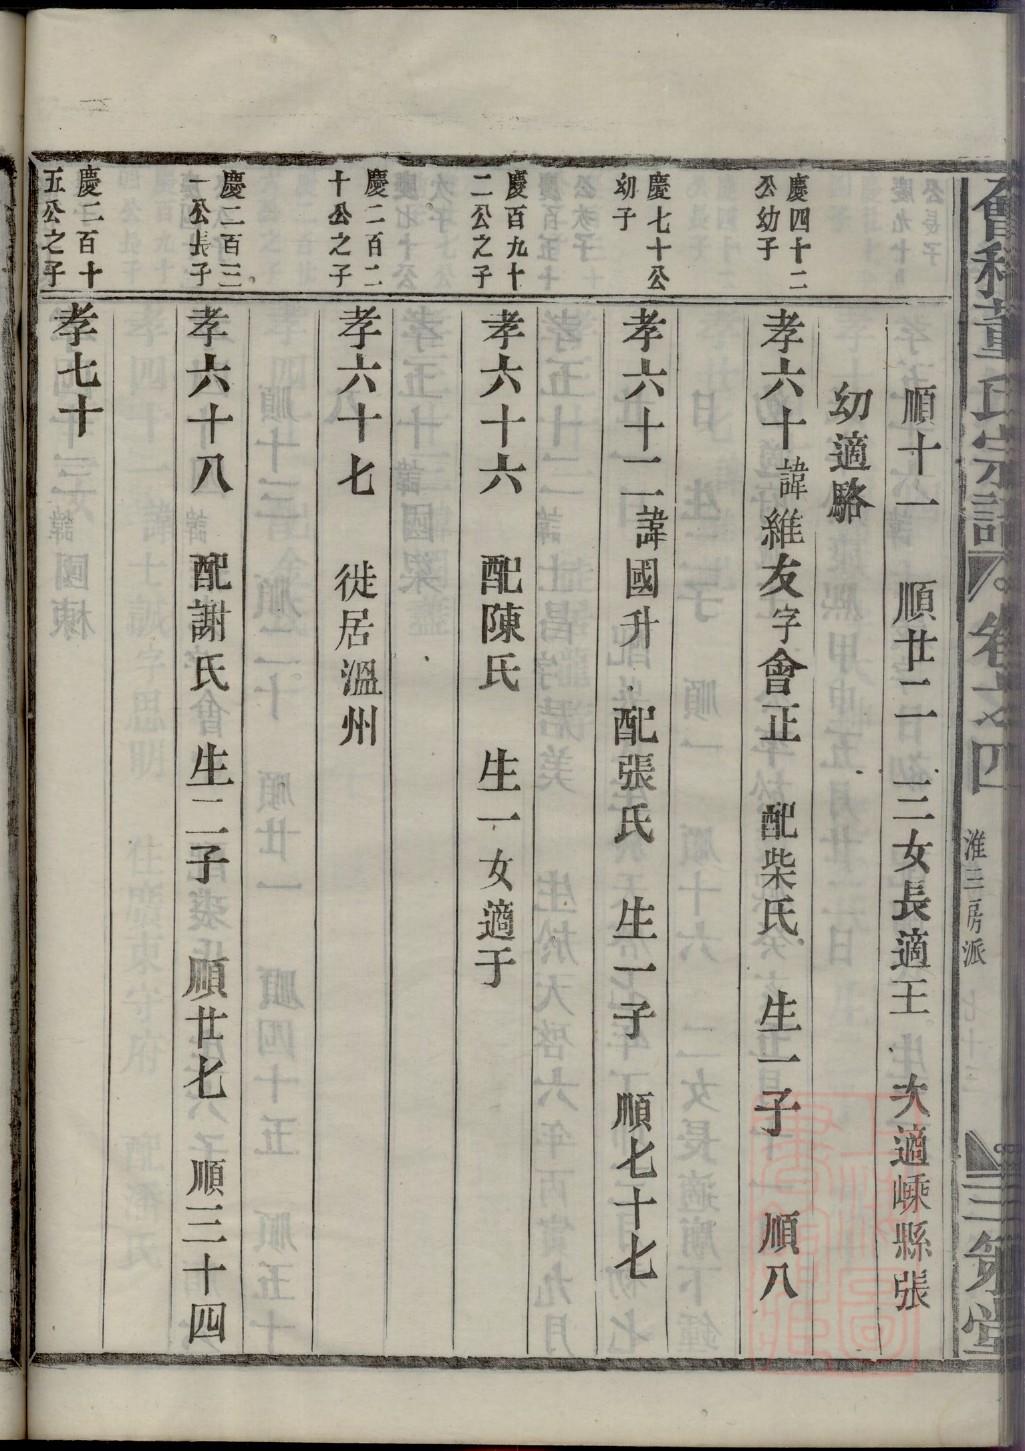 會稽董氏宗譜 卷之四 淮三房派 三策堂
順十一 順廿二 三女長適王 次適嵊縣張
幼適駱
慶四十二
公幼子
孝六十諱維友字會正 配柴氏 生一子 順八
慶七十公
幼子
孝六十二諱國升 配張氏 生一子 順七十七
慶百九十
二公之子
孝六十六 配陳氏 生一女適于
慶二百二
十公之子
孝六十七 徙居溫州
慶二百三
一公長子
孝六十八 配謝氏 生二子 順廿七 順三十四
慶二百十
五公之子
孝七十